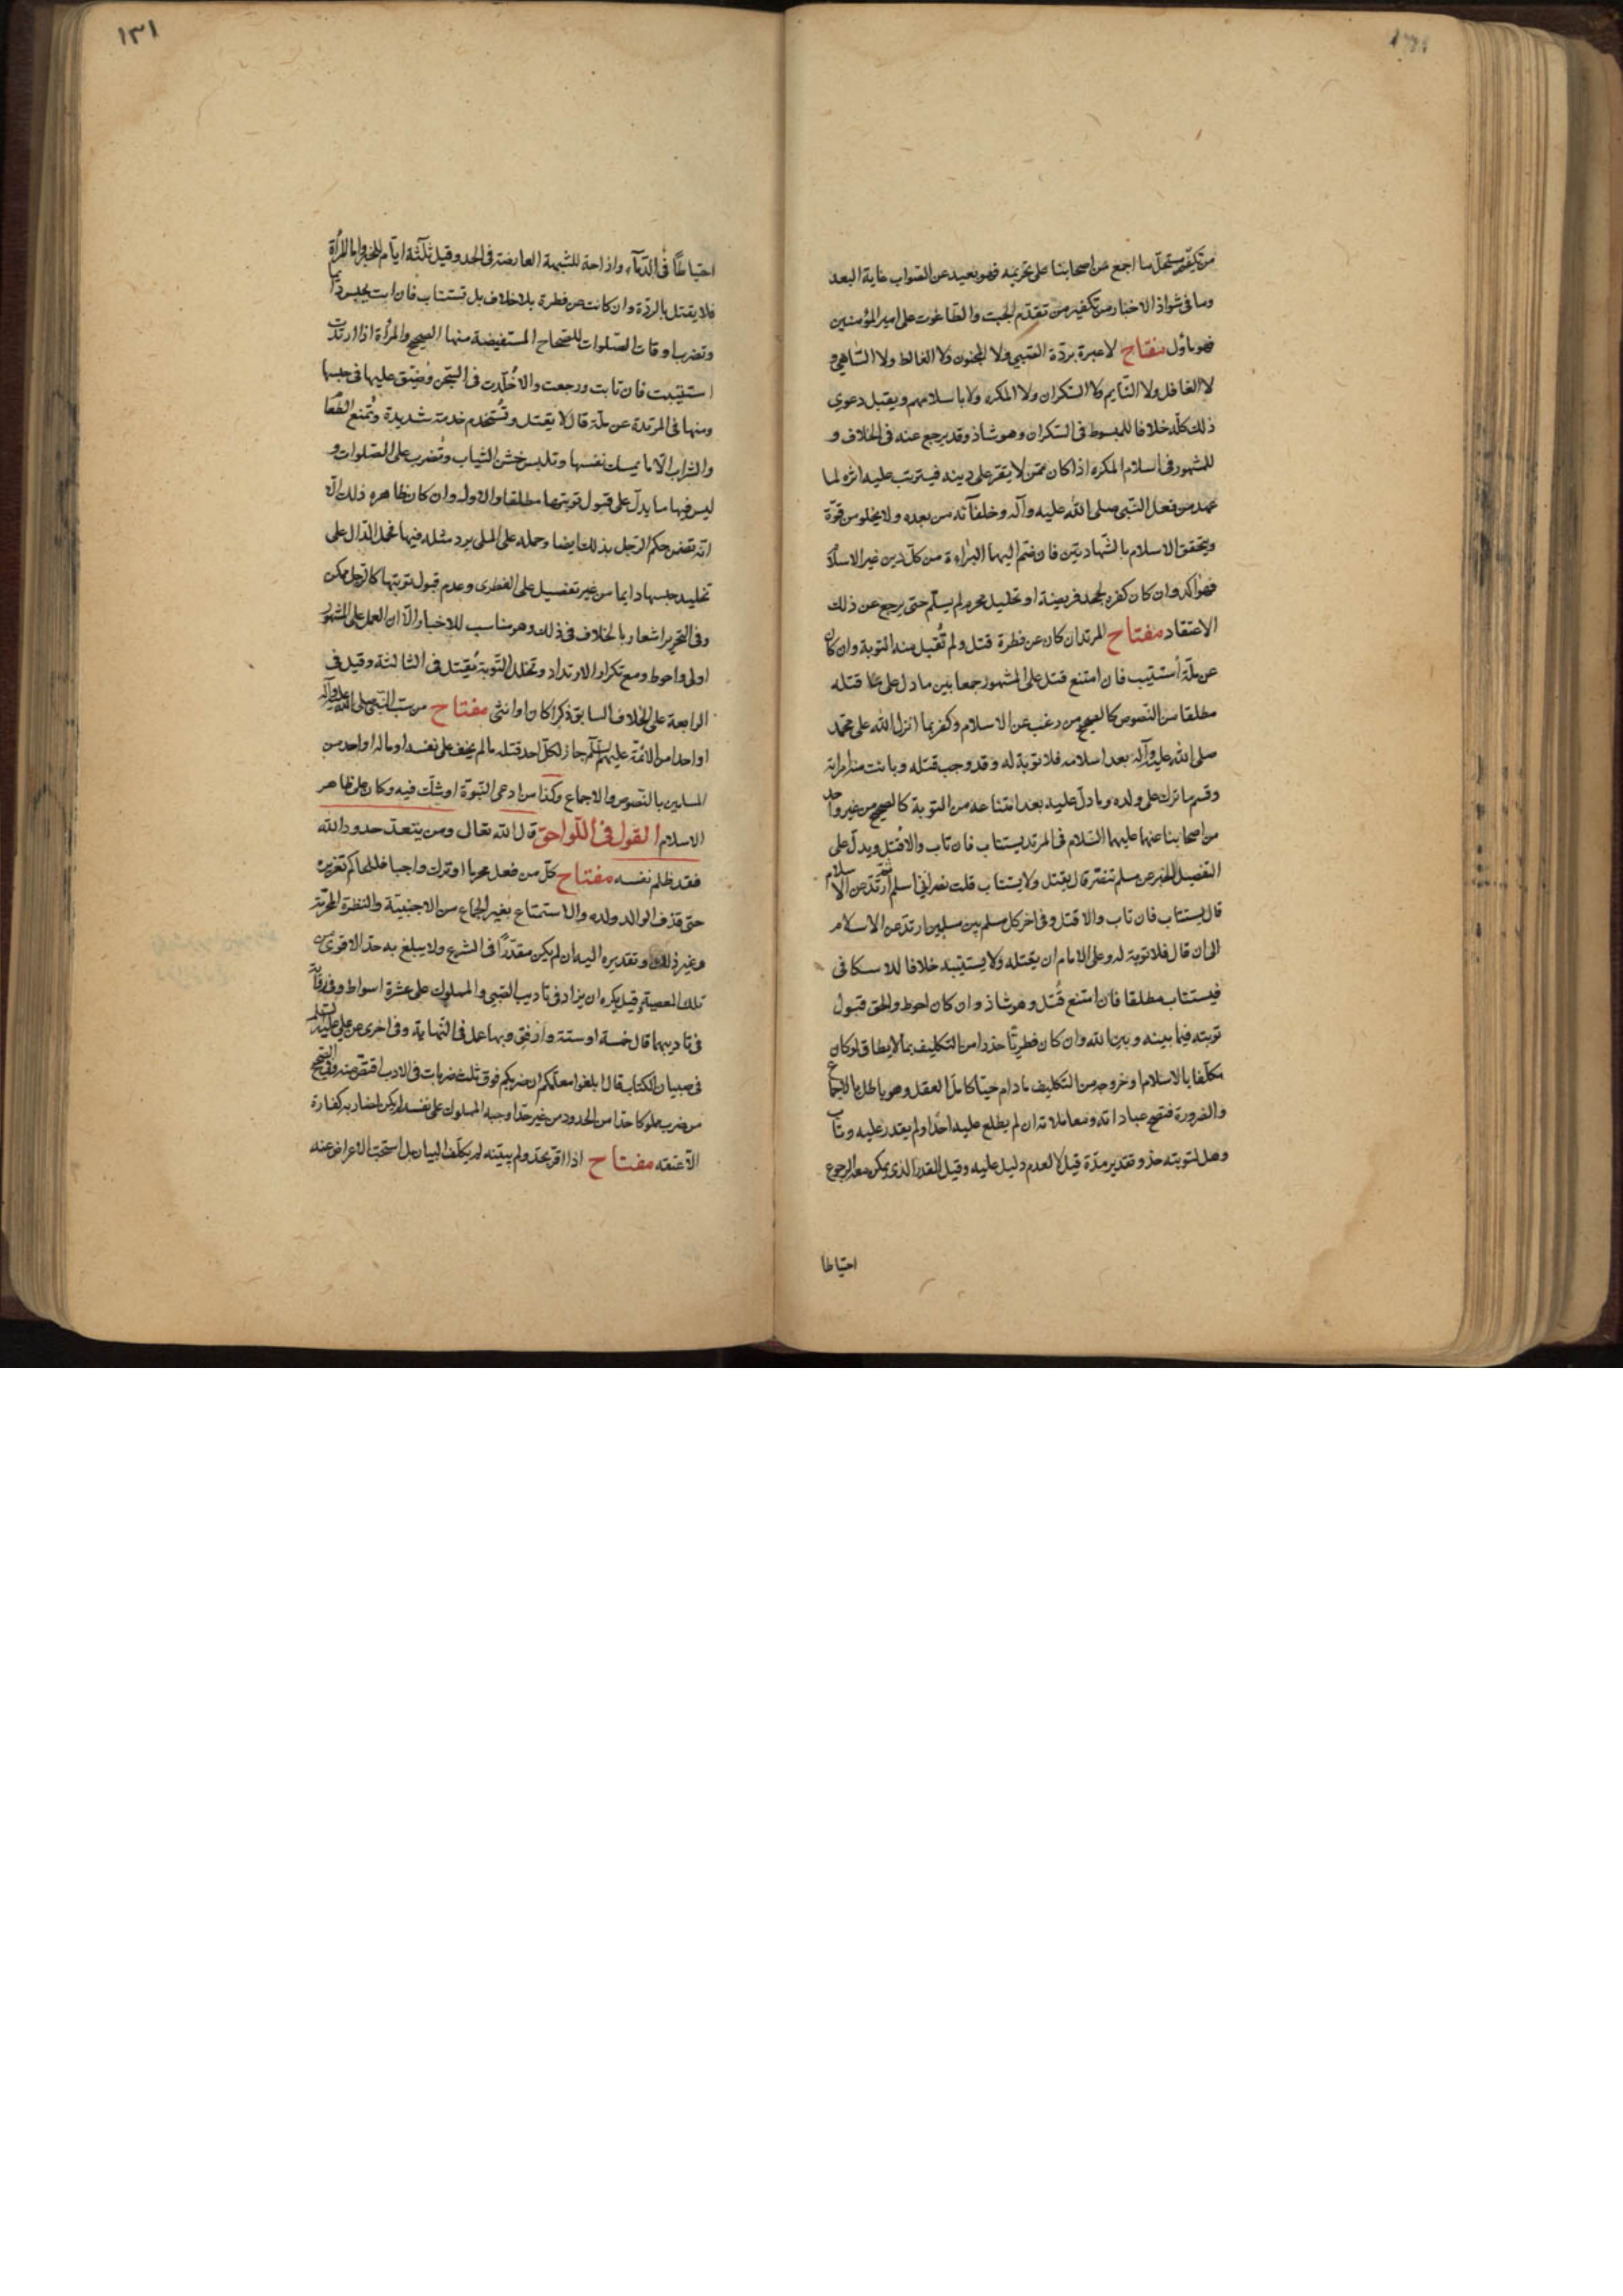 من تكفير مستحل ما اجمع عن اصحابنا على تحريمه فهو بعيد عن الصواب غاية البعد
وما في شواذ الاخبار من تكفير من تقدّم الجبت والطاغوت على امير المؤمنين
فهو ماؤل مفتاح لا عبرة بردّة الصّبي ولا المجنون ولا الغالط ولا السّاهي و
لا الغافل ولا النّايم ولا السّكران ولا المكره ولا باسلامهم ويقبل دعوى
ذلك كلّه خلافا للمبسوط في السّكران وهو شاذ وقد رجع عنه في الخلاف و
للمشهور في اسلام المكره اذا كان ممّن لا يقرّ على دينه فيترتب عليه اثره لما
عهد من فعل النّبي صلى الله عليه وآله وخلفآئه من بعده ولا يخلو من قوّة
ويتحقق الاسلام بالشّهادتين فان ضمّ اليهما البراءة من كلّ دين غير الاسلام
فهو آكد وان كان كفره بجحد فريضة او تحليل محرم لم يسلّم حتى يرجع عن ذلك
الاعتقاد مفتاح المرتد ان كان عن فطرة قتل ولم تُقبل منه التوبة وان كان
عن ملّة أستتيب فان امتنع قتل على المشهور جمعا بين ما دل على قتله
مطلقا من النّصوص كالصحيح من رغب عن الاسلام وكفر بما انزل الله على محمّد
صلى الله عليه وآله بعد اسلامه فلا توبة له وقد وجب قتله وبانت منه امراته
وقسم ما ترك على ولده وما دلّ عليه بعد امتناعه من التوبة كالصحيح من غير واحد
من اصحابنا عنهما عليهما السّلام في المرتد يستتاب فان تاب والا قتل ويدلّ على
التفصيل الخبر عن مسلم تنصّر قال يقتل ولا يستتاب قلت نصراني اسلم ثم ارتدّ عن الاسلام
قال يستتاب فان تاب والا قتل وفي اخر كل مسلم بين مسلمين ارتدّ عن الاسلام
الى ان قال فلا توبة له وعلى الامام ان يقتله ولا يستتيبه خلافا للاسكافي
فيستتاب مطلقا فان امتنع قُتل وهو شاذ وان كان احوط والحق قبول
توبته فيما بينه وبين الله وان كان فطريّا حذرا من التكليف بما لا يطاق لو كان
مكلّفا بالاسلام او خروجه من التكليف ما دام حيّا كامل العقل وهو باطل بالاجماع
والضرورة فتصح عباداته ومعاملاته ان لم يطلع عليه احد او لم يقدر عليه وتاب
وهل لتوبته حدّ وتقدير مدّة قيل لا لعدم دليل عليه وقيل القدر الذي يمكن معه الرجوع
احتياطا
١٣١
احتياطًا في الدّمآء وازاحة للشبهة العارضة في الحد وقيل ثلثة ايّام للخبر واما المرأة
فلا يقتل بالردّة وان كانت عن فطرة بلا خلاف بل تستتاب فان ابت يحبس دائما
وتضرب اوقات الصّلوات للصّحاح المستفيضة منها الصحيح والمرأة اذا ارتدّت
استتيبت فان تابت ورجعت والا خُلّدت في السّجن وضيّق عليها في حبسها
ومنها في المرتدة عن ملّة قال لا يقتل وتُستخدم خدمة شديدة وتُمنع الطّعام
والشراب الّا ما يمسك نفسها وتلبس خشن الثياب وتُضرب على الصّلوات و
ليس فيها ما يدلّ على قبول توبتها مطلقا والاوله وان كان ظاهره ذلك الّا
انّه تضمن حكم الرّجل بذلك ايضا وحمله على الملي يرد مثله فيها فحمل الدّال على
تخليد حبسها دايما من غير تفصيل على الفطرى وعدم قبول توبتها كالرّجل ممكن
وفي التّحرير اشعار بالخلاف في ذلك وهو مناسب للاخبار الّا ان العمل على المشهور
اولى واحوط ومع تكرار الارتداد وتخلل التّوبة يُقتل في الثالثة وقيل في
الرابعة على الخلاف السابق ذكرا كان او انثى مفتاح من سبّ النّبي صلى الله عليه وآله
او واحدا من الائمّة عليهم السّلم جاز لكلّ احد قتله ما لم يخف على نفسه او ماله او واحد من
المسلمين بالنّصوص والاجماع وكذا من ادعى النّبوّة او شكّ فيه وكان على ظاهر
الاسلام القول في اللواحق قال الله تعالى ومن يتعدّ حدود الله
فقد ظلم نفسه مفتاح كلّ من فعل محرما او ترك واجبا فللحاكم تعزيره
حتى قذف الوالد ولده والاستمتاع بغير الجماع من الاجنبيّة والنظرة المحرّمة
وغير ذلك وتقديره اليه ان لم يكن مقدّرا في الشرع ولا يبلغ به حدّ الاقوى من
تلك المعصية وقيل يكره ان يزاد في تاديب الصّبي والمملوك على عشرة اسواط وفي رواية
في تاديبهما قال خمسة او ستة وارفق وبها عمل في النّهاية وفي اخرى عن علي عليه السّلم
في صبيان الكتاب قال ابلغوا معلّمكم ان ضربكم فوق ثلث ضربات في الادب اقتصّ منه وفي الصّحيح
من ضرب مملوكا حدّا من الحدود من غير حدّ اوجبه المملوك على نفسه لم يكن لضاربه كفارة
الّا عتقه مفتاح اذا اقرّ بحدّ ولم يبيّنه لم يكلّف البيان بل استحبّ الاعراض عنه